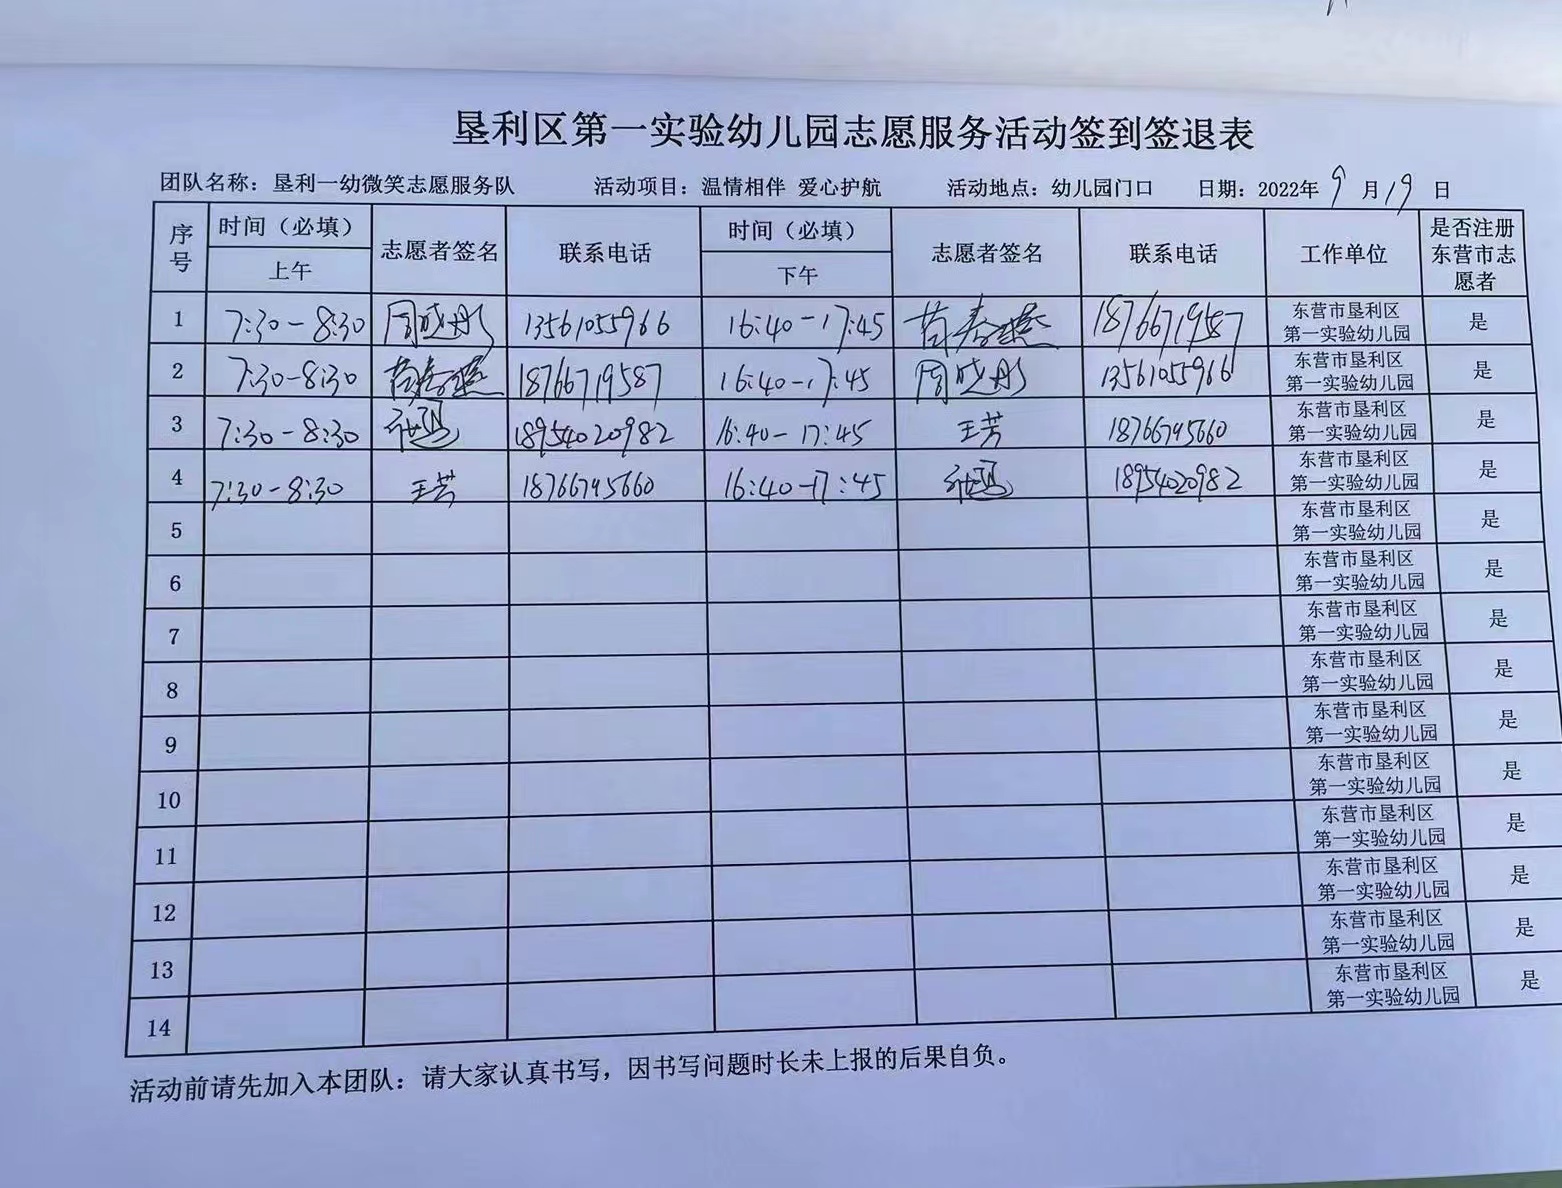 垦利区第一实验幼儿园志愿服务活动签到签退表
团队名称：垦利一幼微笑志愿服务队 活动项目：温情相伴 爱心护航 活动地点：幼儿园门口 日期：2022年 9 月 19 日
序号 时间（必填） 上午 志愿者签名 联系电话 时间（必填） 下午 志愿者签名 联系电话 工作单位 是否注册东营市志愿者
1 7:30-8:30 周晓彤 13561055966 16:40-17:45 18766719587 东营市垦利区第一实验幼儿园 是
2 7:30-8:30 18766719587 16:40-17:45 周晓彤 13561055966 东营市垦利区第一实验幼儿园 是
3 7:30-8:30 18954020982 16:40-17:45 王芳 18766795660 东营市垦利区第一实验幼儿园 是
4 7:30-8:30 王芳 18766795660 16:40-17:45 18954020982 东营市垦利区第一实验幼儿园 是
5 东营市垦利区第一实验幼儿园 是
6 东营市垦利区第一实验幼儿园 是
7 东营市垦利区第一实验幼儿园 是
8 东营市垦利区第一实验幼儿园 是
9 东营市垦利区第一实验幼儿园 是
10 东营市垦利区第一实验幼儿园 是
11 东营市垦利区第一实验幼儿园 是
12 东营市垦利区第一实验幼儿园 是
13 东营市垦利区第一实验幼儿园 是
14 东营市垦利区第一实验幼儿园 是
活动前请先加入本团队：请大家认真书写，因书写问题时长未上报的后果自负。